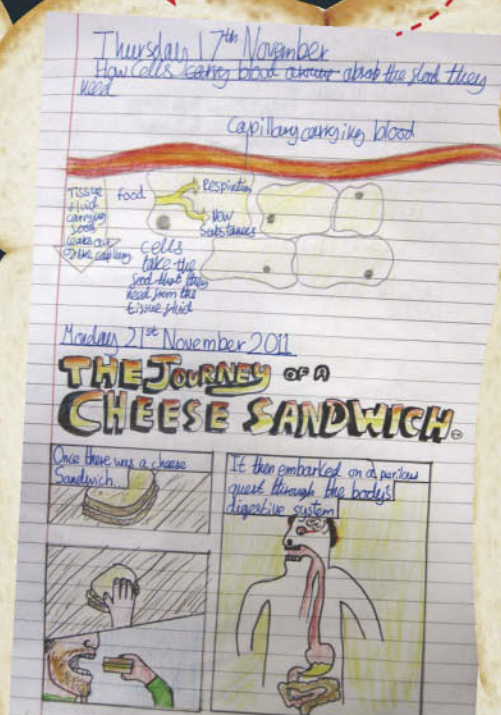 Thursday 17th November
How Cells carry blood around absorb the food they
need
Capillary carrying blood
Tissue
fluid
carrying
food
leaks out
of the capillary
food
Respiration
New
Substances
cells
take the
food that they
need from the
tissue fluid
Monday 21st November 2011
THE JOURNEY OF A
CHEESE SANDWICH.
Once there was a cheese
Sandwich...
It then embarked on a perilous
quest through the body's
digestive system